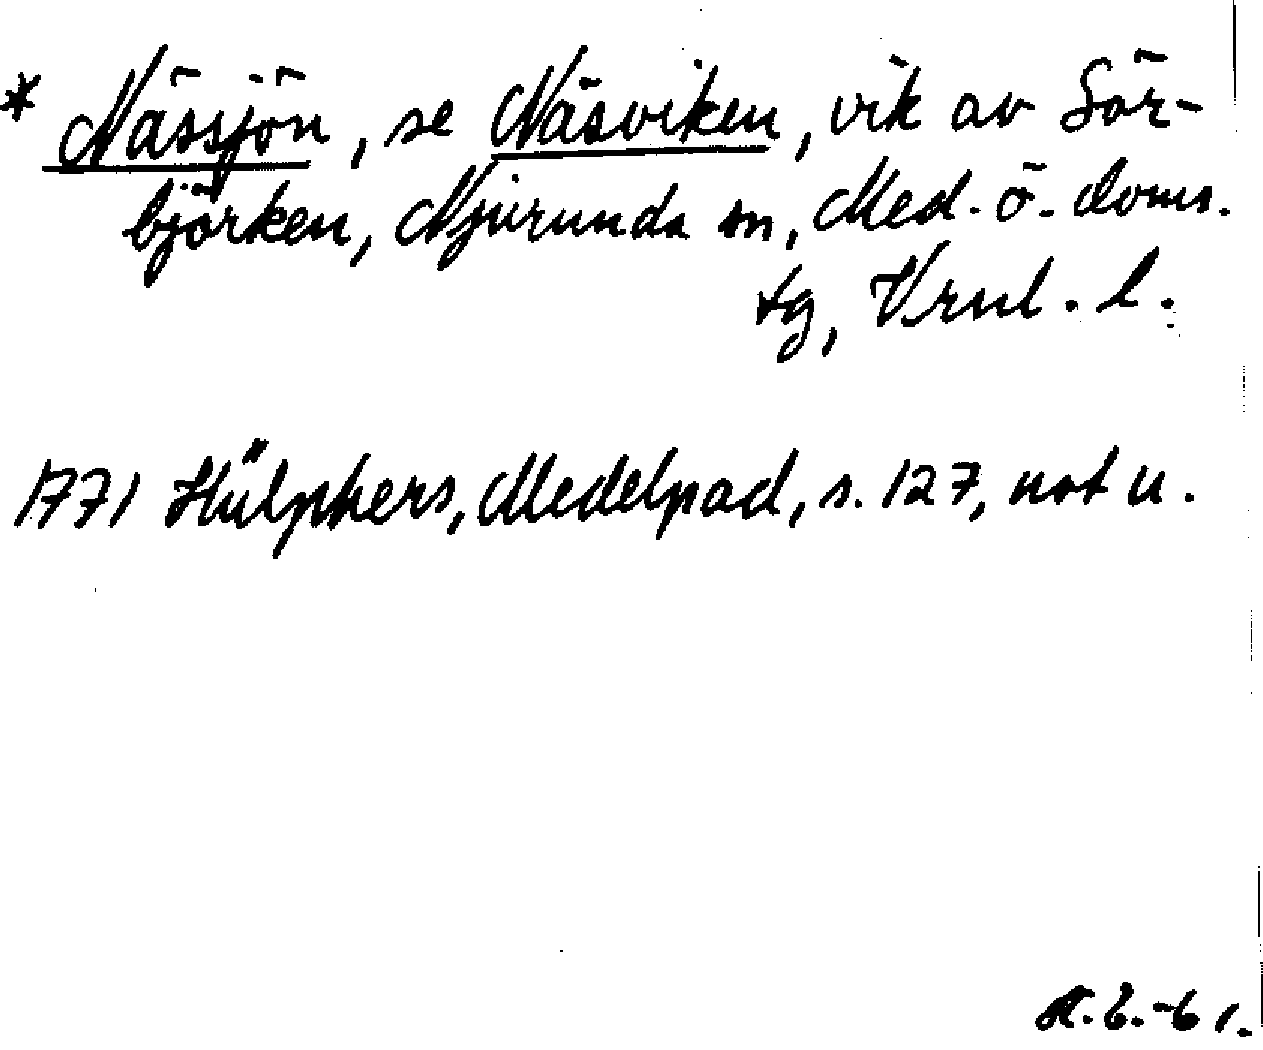 * Nässjön, se Näsviken, vik av Sör-
björken, Njurunda sn, Med. ö. doms.
tg, Vrnl. l.
1771 Hülphers, Medelpad, s. 127, not u.
-61.